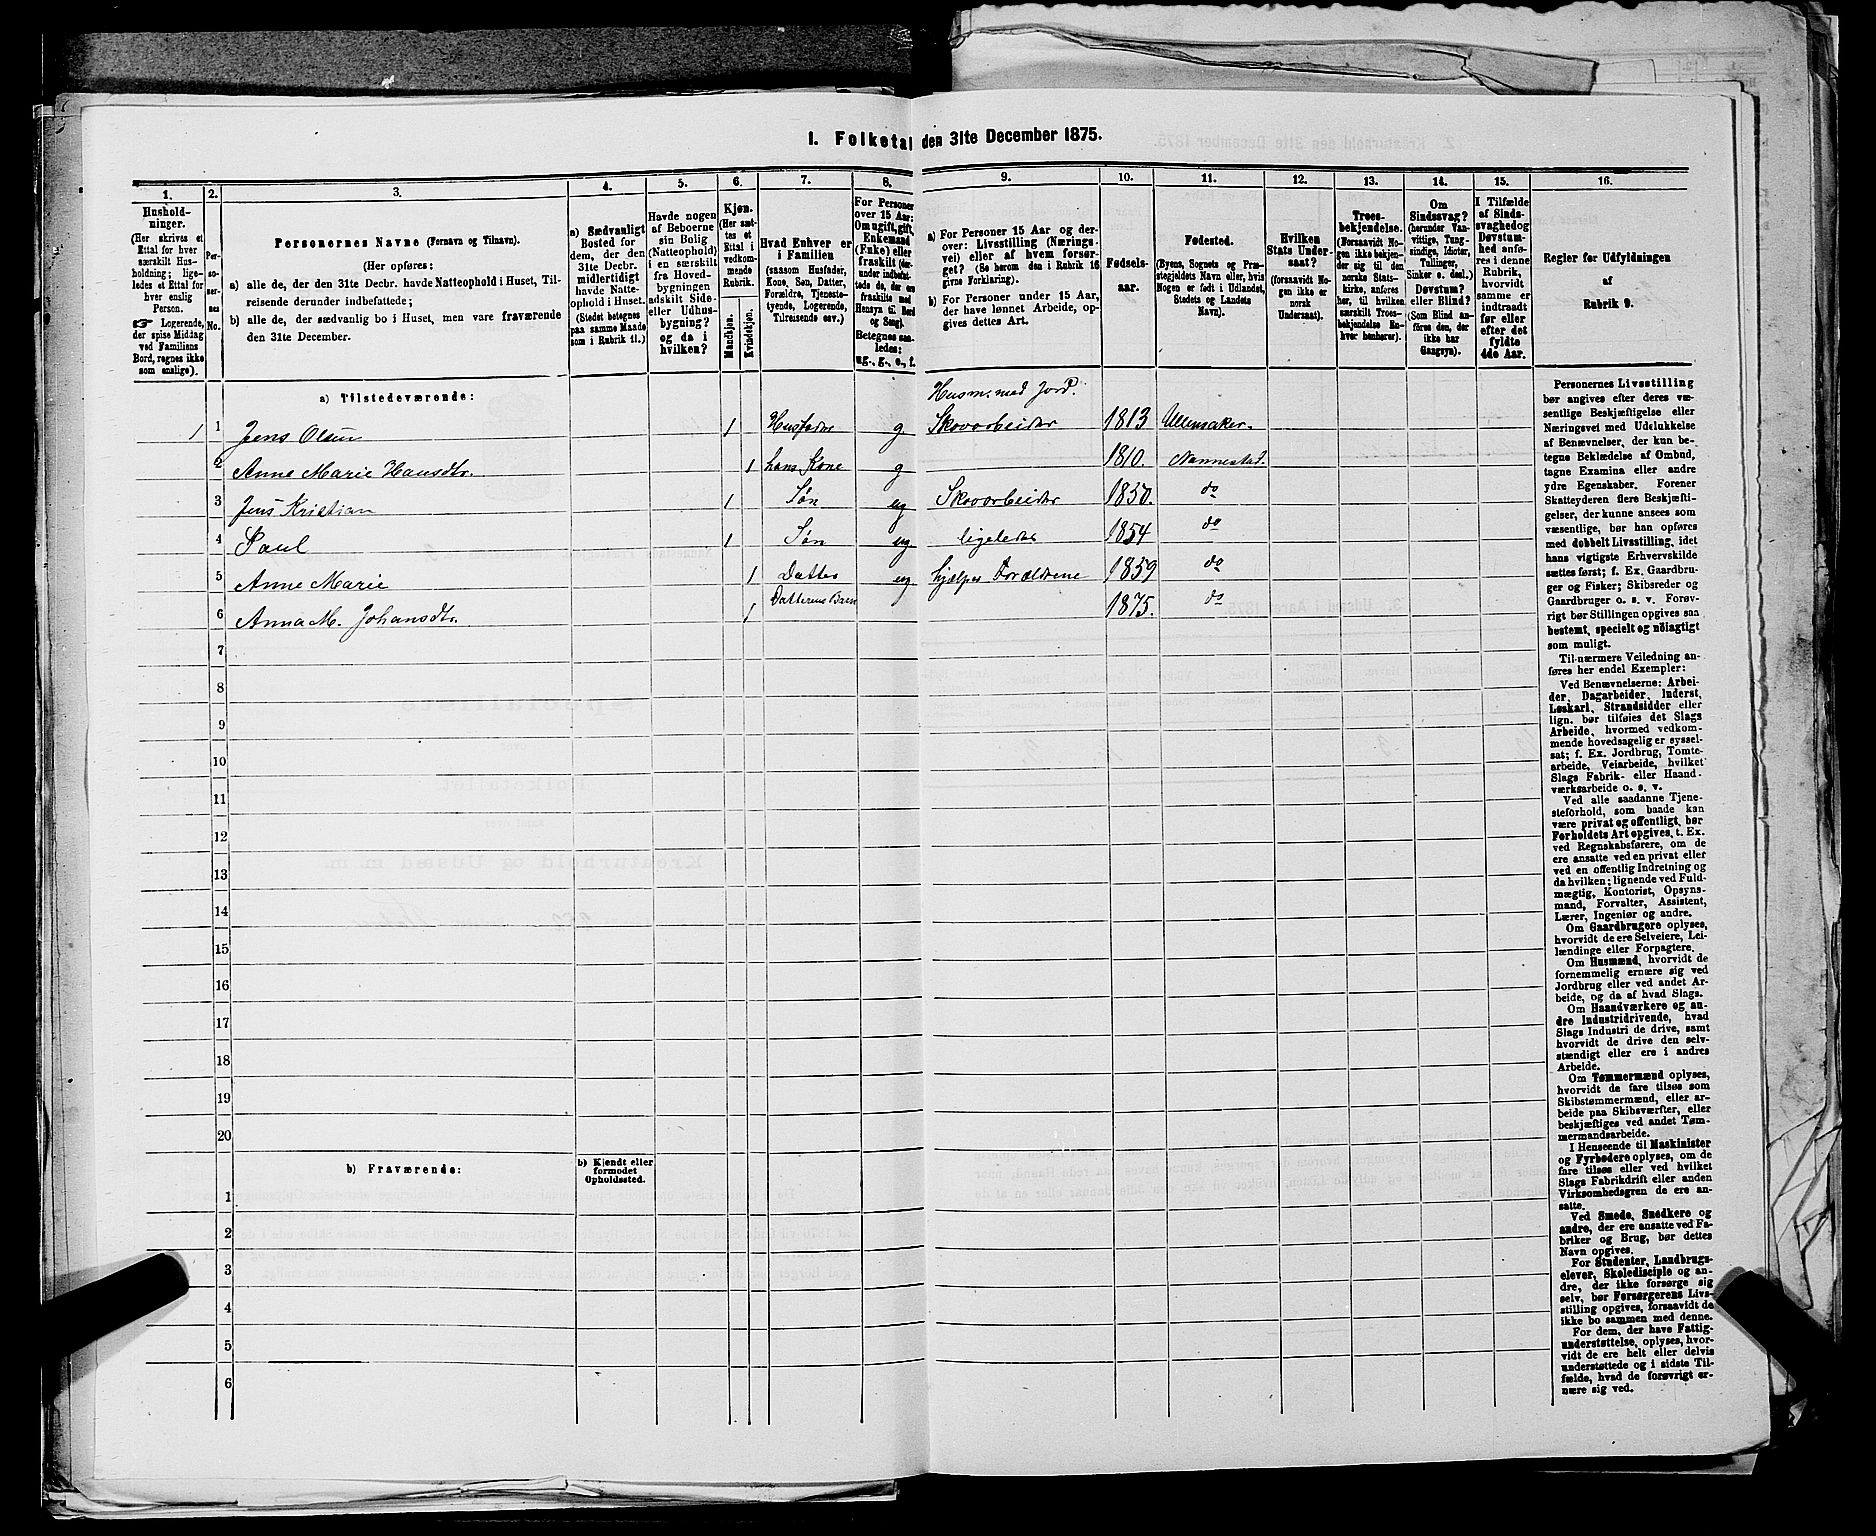 1. Folketal den 31te December 1875.
1.
Hushold-
ninger.
(Her skrives et
Ettal for hver
særskilt Hus-
holdning; lige-
ledes et Ettal for
hver enslig
Person.
☞ Logerende,
der spise Middag
ved Familiens
Bord, regnes ikke
som enslige).
2.
Per-
so-
ner-
nes
No.
3.
Personernes Navne (Fornavn og Tilnavn).
(Her opføres:
a) alle de, der den 31te Decbr. havde Natteophold i Huset, Til-
reisende derunder indbefattede;
b) alle de, der sædvanlig bo i Huset, men vare fraværende
den 31te December.
4.
a) Sædvanligt
Bosted for
dem, der den
31te Decbr.
midlertidigt
havde Natte-
ophold i Huset.
(Stedet betegnes
paa samme Maade
som i Rubrik 11.)
5.
Havde nogen
af Beboerne
sin Bolig
(Natteophold)
i en særskilt
fra Hoved-
bygningen
adskilt Side-
eller Udhus-
bygning?
og da i
hvilken?
6.
Kjøn.
(Her sæt-
tes et
Ettal i
vedkom-
mende
Rubrik.
Mandkjøn.
Kvindekjøn.
7.
Hvad Enhver er
i Familien
(saasom Husfader,
Kone, Søn, Datter,
Forældre, Tjeneste-
tyende, Logerende,
Tilreisende osv.)
8.
For Personer
over 15 Aar:
Om ugift, gift,
Enkemand
(Enke) eller
fraskilt (der-
under indbefat-
tede de, der ere
fraskilte med
Hensyn til Bord
og Seng).
Betegnes saa-
ledes:
ug., g., e., f.
9.
a) For Personer 15 Aar og der-
over: Livsstilling (Nærings-
vei) eller af hvem forsør-
get? (Se herom den i Rubrik 16
givne Forklaring).
b) For Personer under 15 Aar,
der have lønnet Arbeide, op-
gives dettes Art.
10.
Fødsels-
aar.
11.
Fødested.
(Byens, Sognets og Præ-
stegjeldets Navn eller, hvis
Nogen er født i Udlandet,
Stedets og Landets
Navn).
12.
Hvilken
Stats Under-
saat?
(forsaavidt No-
gen ikke er
norsk
Undersaat).
13.
Troes-
bekjendelse.
(Forsaavidt No-
gen ikke bekjen-
der sig til den
norske Stats-
kirke, anføres
her, til hvilken
særskilt Troes-
bekjendelse En-
hver henhører).
14.
Om
Sindssvag?
(herunder Van-
vittige, Tung-
sindige, Idioter,
Tullinger,
Sinker o. desl.)
Døvstum?
eller Blind?
(Som Blind an-
føres den, der
ikke har
Gangsyn).
15.
I Tilfælde
af Sinds-
svaghed og
Døvstum-
hed anfø-
res i denne
Rubrik,
hvorvidt
samme er
indtraadt
før eller
efter det
fyldte
4de Aar.
16.
Regler for Udfyldningen
af
Rubrik 9.
a) Tilstedeværende:
Husm. med Jord.
1 1 Jens Olsen 1 Husfader g Skovarbeider 1813 Ullensaker.
2 Anne Marie Hansdtr. 1 hans Kone g 1810. Nannestad.
3 Jens Kristian 1 Søn ug Skovarbeider 1850. do
4 Paul 1 Søn ug ligeledes 1854 do
5 Anne Marie 1 Datter ug hjælper Forældrene 1859 do
6 Anna M. Johansdtr. 1 Datterens Barn 1875. do
7
8
9
10
11
12
13
14
15
16
17
18
19
20
b) Fraværende:
b) Kjendt eller
formodet
Opholdssted.
1
2
3
4
5
6
Personernes Livsstilling
bør angives efter deres væ-
sentlige Beskjæftigelse eller
Næringsvei med Udelukkelse
af Benævnelser, der kun be-
tegne Beklædelse af Ombud,
tagne Examina eller andre
ydre Egenskaber. Forener
Skatteyderen flere Beskjæfti-
gelser, der kunne ansees som
væsentlige, bør han opføres
med dobbelt Livsstilling, idet
hans vigtigste Erhvervskilde
sættes først; f. Ex. Gaardbru-
ger og Fisker; Skibsreder og
Gaardbruger o. s. v. Forøv-
rigt bør Stillingen opgives saa
bestemt, specielt og nøiagtigt
som muligt.
Til nærmere Veiledning an-
føres her endel Exempler:
Ved Benævnelserne: Arbei-
der, Dagarbeider, Inderst,
Løskarl, Strandsidder eller
lign. bør tilføies det Slags
Arbeide, hvormed vedkom-
mende hovedsagelig er syssel-
sat; f. Ex. Jordbrug, Tomte-
arbeide, Veiarbeide, hvilket
Slags Fabrik- eller Haand-
værksarbeide o. s. v.
Ved alle saadanne Tjene-
steforhold, som baade kan
være privat og offentligt, bør
Forholdets Art opgives, t. Ex.
ved Regnskabsførere, om de
ere ansatte ved en privat eller
ved en offentlig Indretning og
da hvilken; lignende ved Fuld-
mægtig, Kontorist, Opsyns-
mand, Forvalter, Assistent,
Lærer, Ingeniør og andre.
Om Gaardbrugere oplyses,
hvorvidt de ere Selveiere, Lei-
lændinge eller Forpagtere.
Om Husmænd, hvorvidt de
fornemmelig ernære sig ved
Jordbrug eller ved andet Ar-
beide, og da af hvad Slags.
Om Haandværkere og an-
dre Industridrivende, hvad
Slags Industri de drive, samt
hvorvidt de drive den selv-
stændigt eller ere i andres
Arbeide.
Om Tømmermænd oplyses,
hvorvidt de fare tilsøs som
Skibstømmermænd, eller ar-
beide paa Skibsværfter, eller
beskjæftiges ved andet Tøm-
mermandsarbeide.
I Henseende til Maskinister
og Fyrbødere oplyses, om de
fare tilsøs eller ved hvilket
Slags Fabrikdrift eller anden
Virksomhedsgren de ere an-
satte.
Ved Smede, Snedkere og
andre, der ere ansatte ved Fa-
briker og Brug, bør dettes
Navn opgives.
For Studenter, Landbrugs-
elever, Skoledisciple og an-
dre, der ikke forsørge sig
selv, bør Forsørgerens Livs-
stilling opgives, forsaavidt de
ikke bo sammen med denne.
For dem, der have Fattig-
understøttelse, oplyses, hvor-
vidt de ere helt eller delvis
understøttede og i sidste Til-
fælde, hvad de forøvrigt er-
nære sig ved.